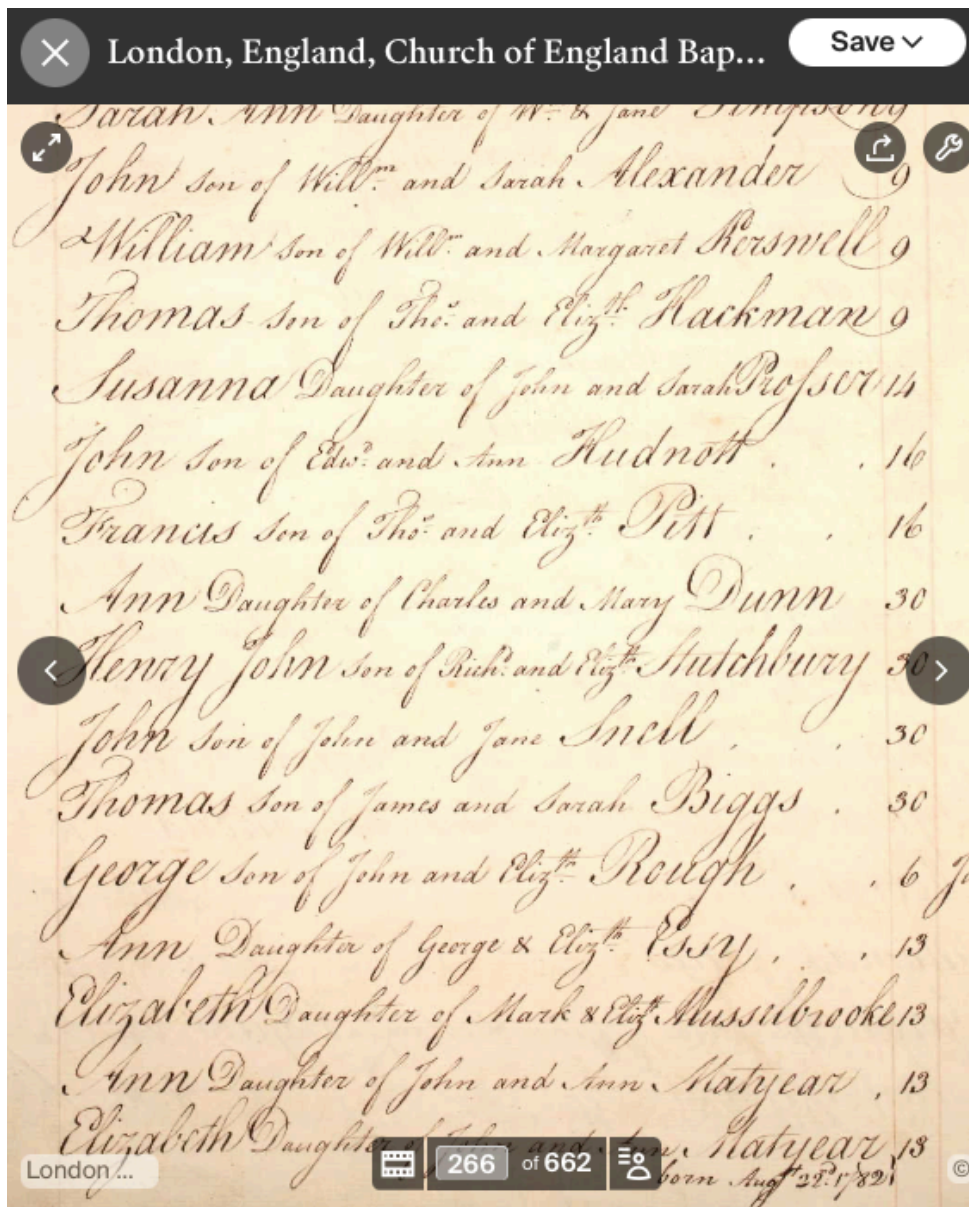 London, England, Church of England Bap...
Save
Sarah Ann Daughter of Wm. & Jane Simpson 9
John son of Willm. and Sarah Alexander 9
William son of Willm. and Margaret Kerswell 9
Thomas son of Thos. and Elizth. Hackman 9
Susanna Daughter of John and Sarah Prosser 14
John son of Edwd. and Ann Hudnott . . 16
Francis son of Thos. and Elizth. Pitt . . 16
Ann Daughter of Charles and Mary Dunn 30
Henry John son of Richd. and Elizth. Stutchbury 30
John son of John and Jane Snell . . 30
Thomas son of James and Sarah Biggs . 30
George son of John and Elizth. Rough . . 6
Ann Daughter of George & Elizth. Essy . . 13
Elizabeth Daughter of Mark & Elizth. Musselbrooke 13
Ann Daughter of John and Ann Matyear . 13
Elizabeth Daughter of John and Ann Matyear 13
born Augst 22d. 1782
London ...
266 of 662
©